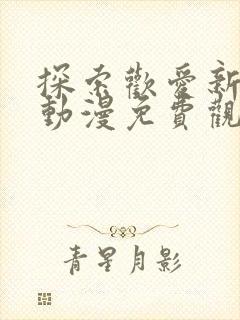 探索歡愛新
動漫免費觀
青星月影